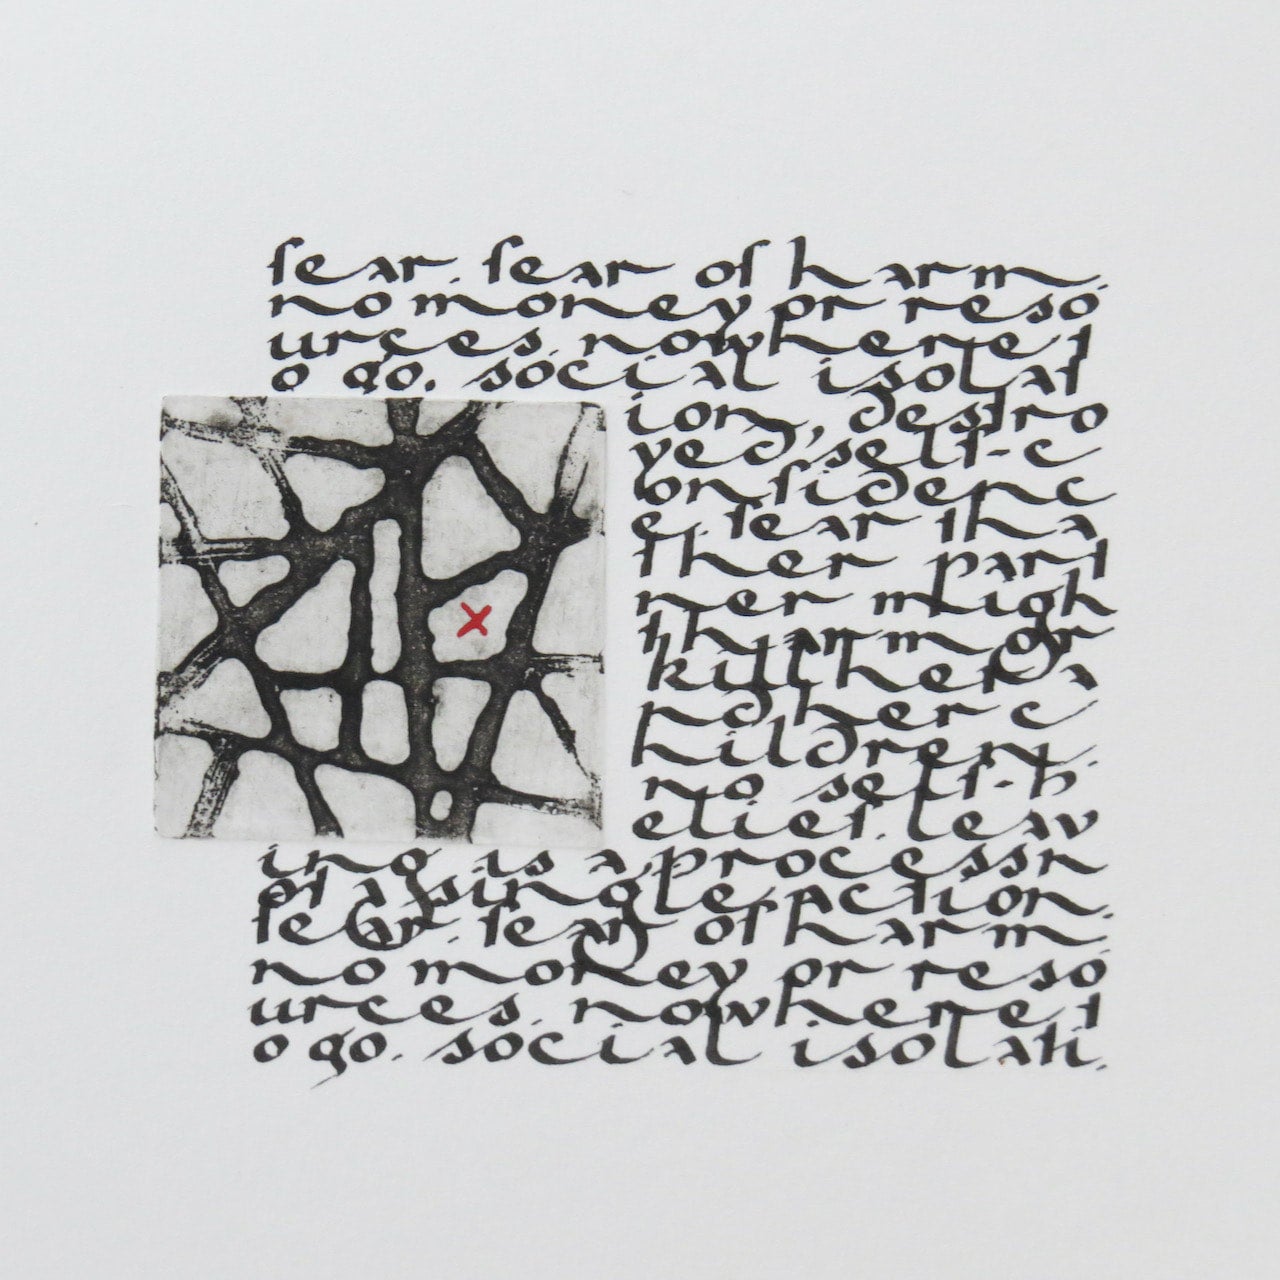 fear. fear of harm.
no money or reso
urces. nowhere t
o go. social isolat
ion, destro
yed self-c
onfidenc
e. fear tha
t her part
ner migh
t harm or
kill her a
nd her c
hildren.
no self-b
elief. leav
ing is a process n
ot a single action.
fear. fear of harm.
no money or reso
urces. nowhere t
o go. social isolati.